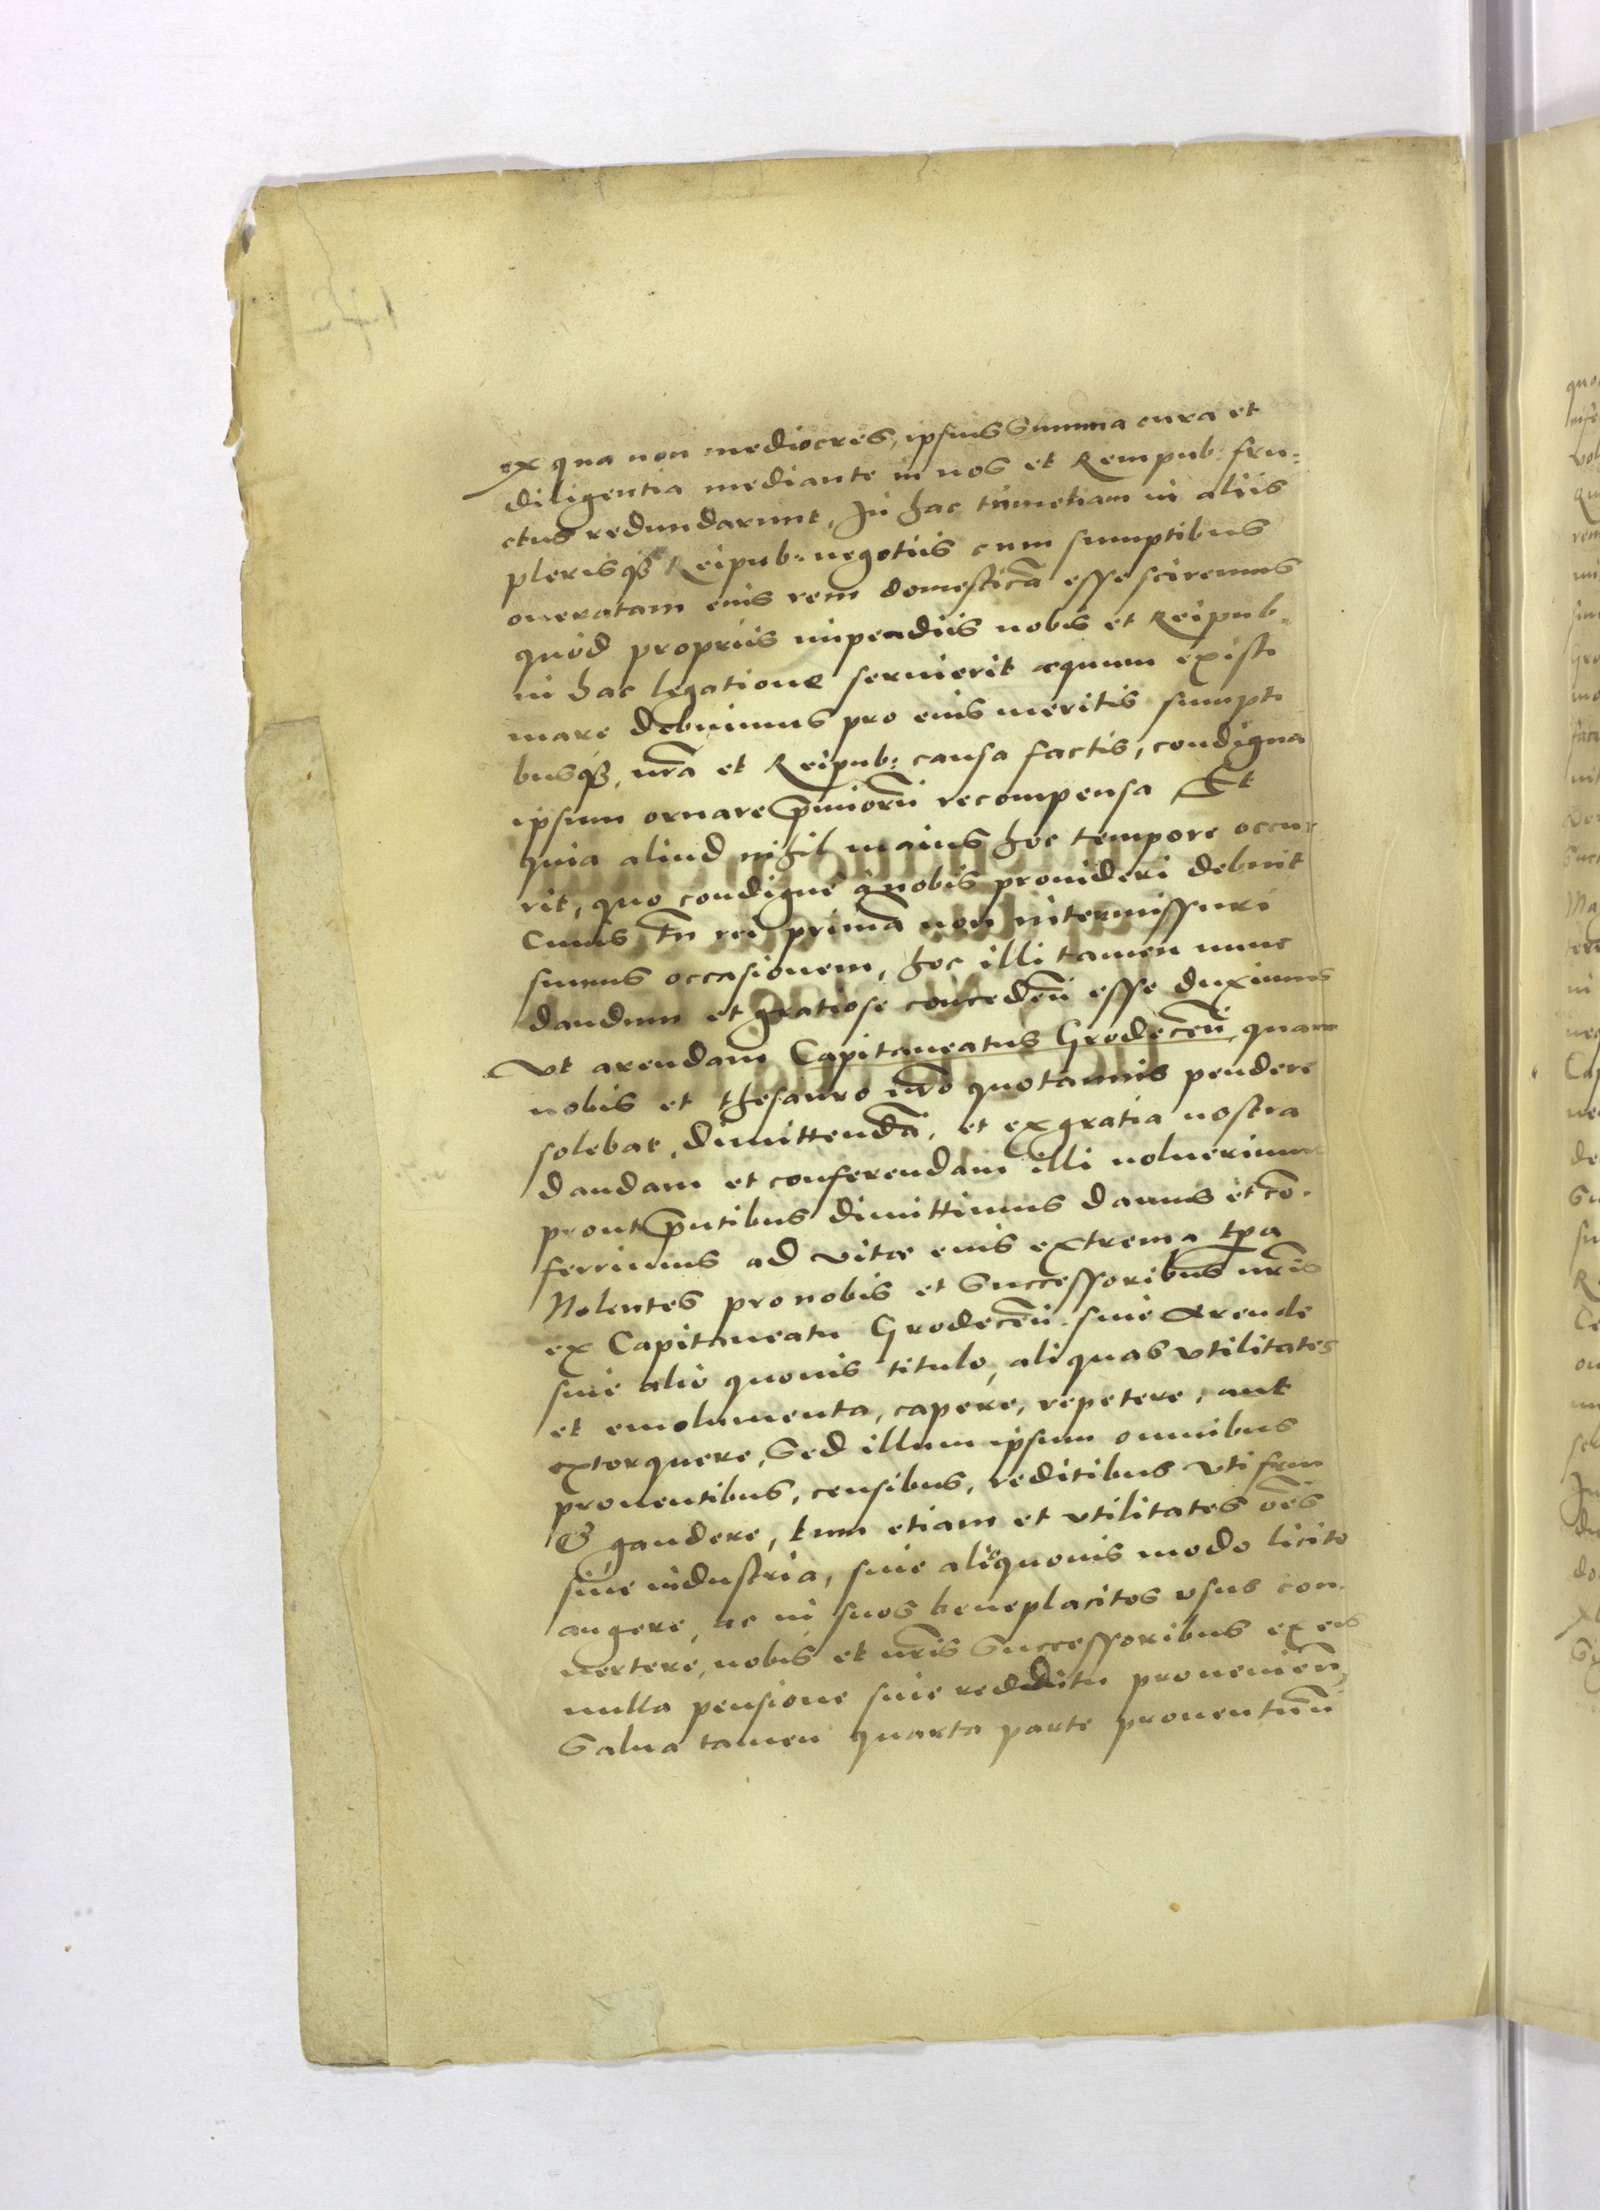 ex qua non mediocres, ipsius Summa cura et
diligentia mediante in nos et Rempub: fru-
ctus redundarunt, In hac tum etiam in aliis
plerisq3 Reipub: negotiis cum sumptibus
oneratam eius rem domesticā esse sciremus
quod propriis impendiis nobis et Reipub:
in hac legatione seruierit æquum existi
mare debuimus pro eius meritis sumpti
busq3, nrā et Reipub: causa factis, condigna
ipsum ornare p̄miorū recompensa Et
quia aliud nihil maius hoc tempore occur
rit, quo condigne à nobis prouideri debuit
Cuius tn̄ rei primā non intermissuri
sumus occasionem, hoc illi tamen nunc
dandum et gratiose concedēn esse duximus
Vt arendam Capitaneatus Grodecēn, quam
nobis et thesauro nrō quotannis pendere
solebat, dimittendā, et ex gratia nostra
dandam et conferendam illi voluerimus
prout p̄ntibus dimittimus damus et cō-
ferrimus ad vitæ eius extrema tp̄a
Nolentes pro nobis et Successoribus nrīs
ex Capitaneatu Grodecēn siue Arende
siue alio quouis titulo, aliquas vtilitates
et emolumenta, capere, repetere, aut
extorquere, Sed illum ipsum omnibus
prouentibus, censibus, reditibus vti frui
& gaudere, tum etiam et vtilitates oēs
siue industria, siue alio quouis modo licito
augere, ac in suos beneplacitos vsus con-
uertere, nobis et nrīs Successoribus ex eis
nulla pensione siue redditu prouenien̄,
Salua tamen quarta parte prouentuū